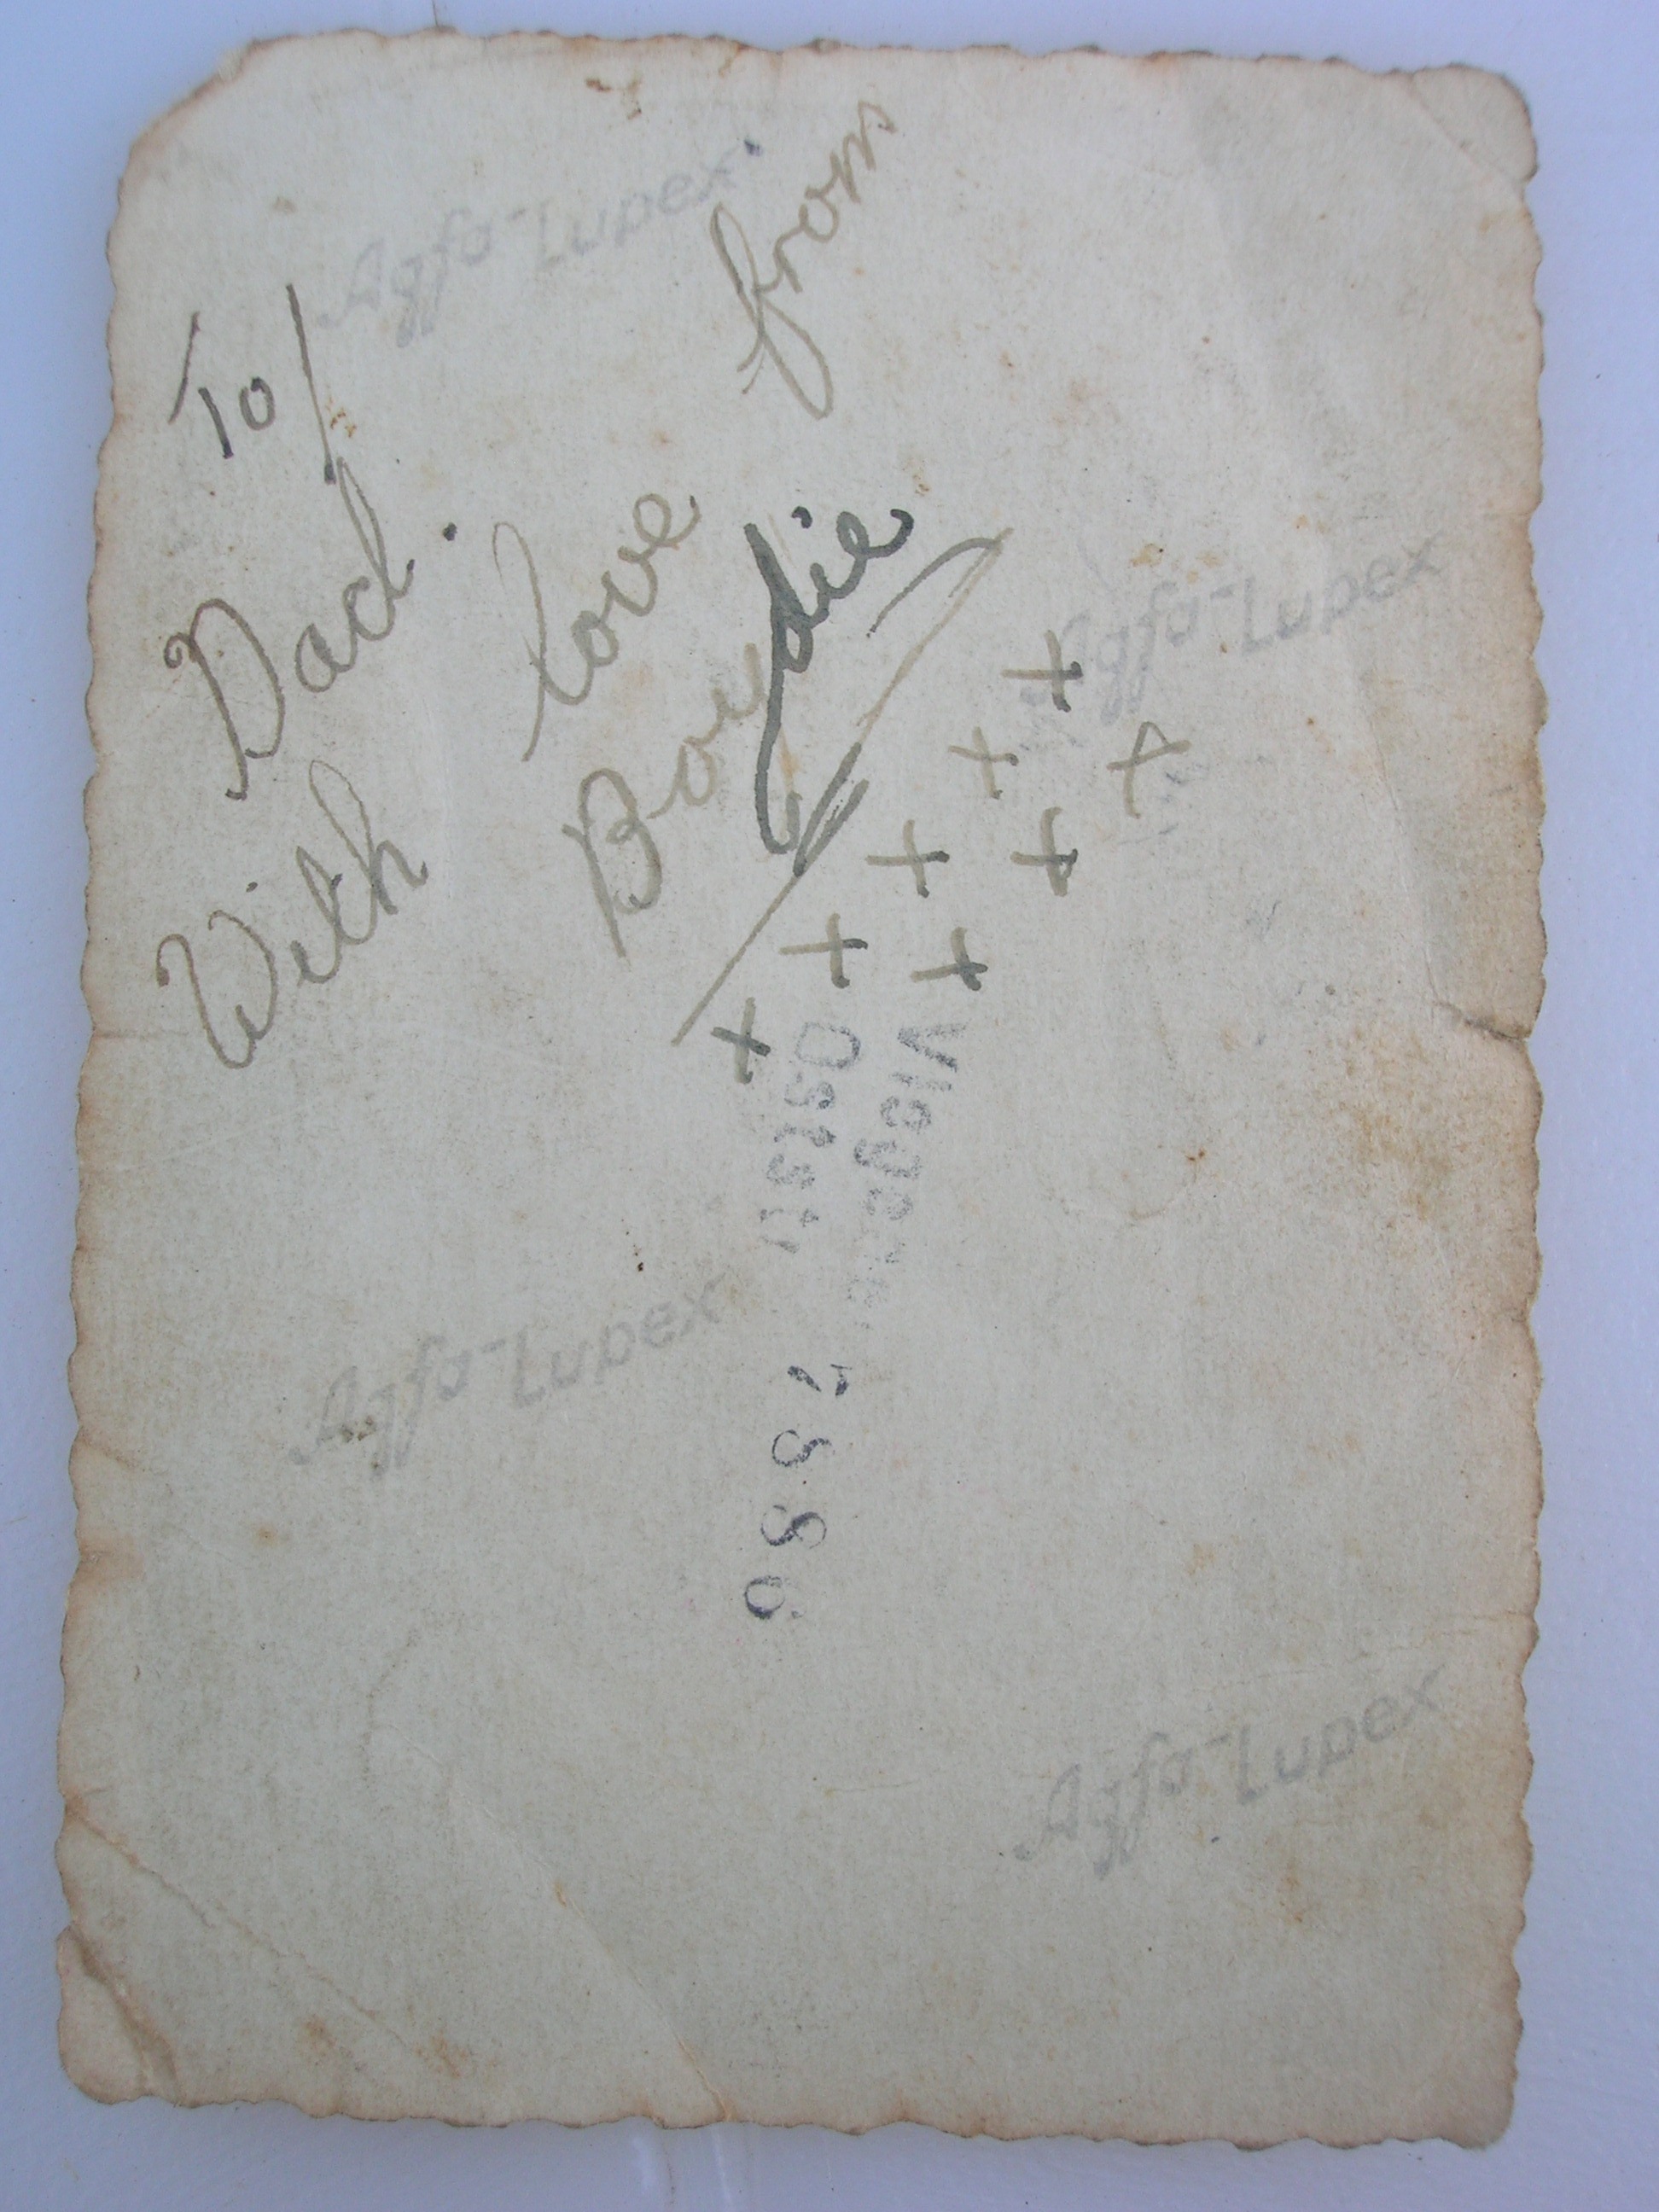 Agfa-Lupex
To/
Dad.
With love from
Boydie
x x x x x
x x x
Agfa-Lupex
Agfa-Lupex
Agfa-Lupex